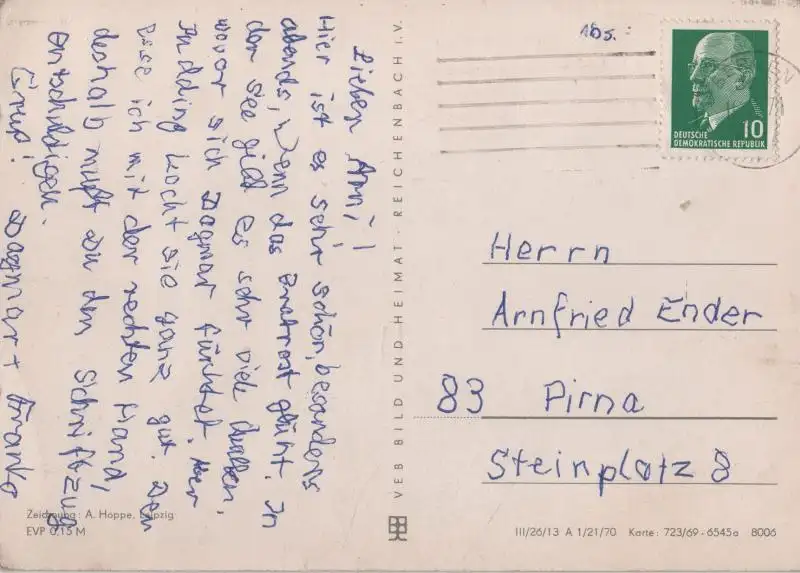 Lieber Arni!
Hier ist es sehr schön, besonders
abends, wenn das Bratrost glüht. In
der See gibt es sehr viele Quallen,
wovor sich Dagmar fürchtet. Aber
Pudding kocht sie ganz gut. Den
esse ich mit der rechten Hand,
deshalb mußt du den Schriftzug
entschuldigen.
Gruß! Dagmar + Franko
Zeichnung: A. Hoppe, Leipzig
EVP 0,15 M
VEB BILD UND HEIMAT · REICHENBACH I. V.
Abs.:
10
DEUTSCHE
DEMOKRATISCHE REPUBLIK
Herrn
Arnfried Ender
83 Pirna
Steinplatz 8
III/26/13 A 1/21/70 Karte: 723/69-6545a 8006